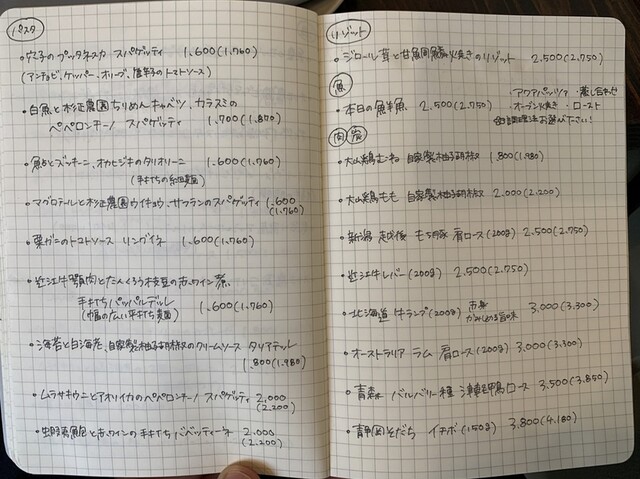 パスタ
・夕子のプッタネスカ スパゲッティ 1,600(1,760)
(アンチョビ、ケッパー、オリーブ、唐辛子のトマトソース)
・白魚と杉正農園ちりめんキャベツ、カラスミの
ペペロンチーノ スパゲッティ 1,700(1,870)
とズッキーニ、オカヒジキのタリオリーニ 1,600(1,760)
(手打ちの細麺)
・マグロテールと杉正農園ウイキョウ、サフランのスパゲッティ 1,600
(1,760)
・栗ガニのトマトソース リングイネ 1,600(1,760)
・近江牛顎肉とたんくろう枝豆の赤ワイン煮
手打ちパッパルデッレ 1,600(1,760)
(幅の広い平打ち麺)
・海苔と白海老、自家製柚子胡椒のクリームソース タリアテッレ
1,800(1,980)
・ムラサキウニとアオリイカのペペロンチーノ スパゲッティ 2,000
(2,200)
・蝦夷鮑と赤ワインの手打ち バベッティーネ 2,000
(2,200)
リゾット
・ジロール茸と甘鯛鱗焼きのリゾット 2,500(2,750)
魚
・本日の鮮魚 2,500(2,750)
・アクアパッツァ ・蒸し合わせ
・オーブン焼き ・ロースト
調理法お選びください!
肉 炭
・大山鶏むね 自家製柚子胡椒 1,800(1,980)
・大山鶏もも 自家製柚子胡椒 2,000(2,200)
・新潟 越後 もち豚 肩ロース(200g) 2,500(2,750)
・近江牛レバー(200g) 2,500(2,750)
・北海道 牛ランプ(200g) 赤身 かみしめる旨味 3,000(3,300)
・オーストラリア ラム 肩ロース(200g) 3,000(3,300)
・青森 バルバリー種 津軽鴨ロース 3,500(3,850)
そだち イチボ(150g) 3,800(4,180)